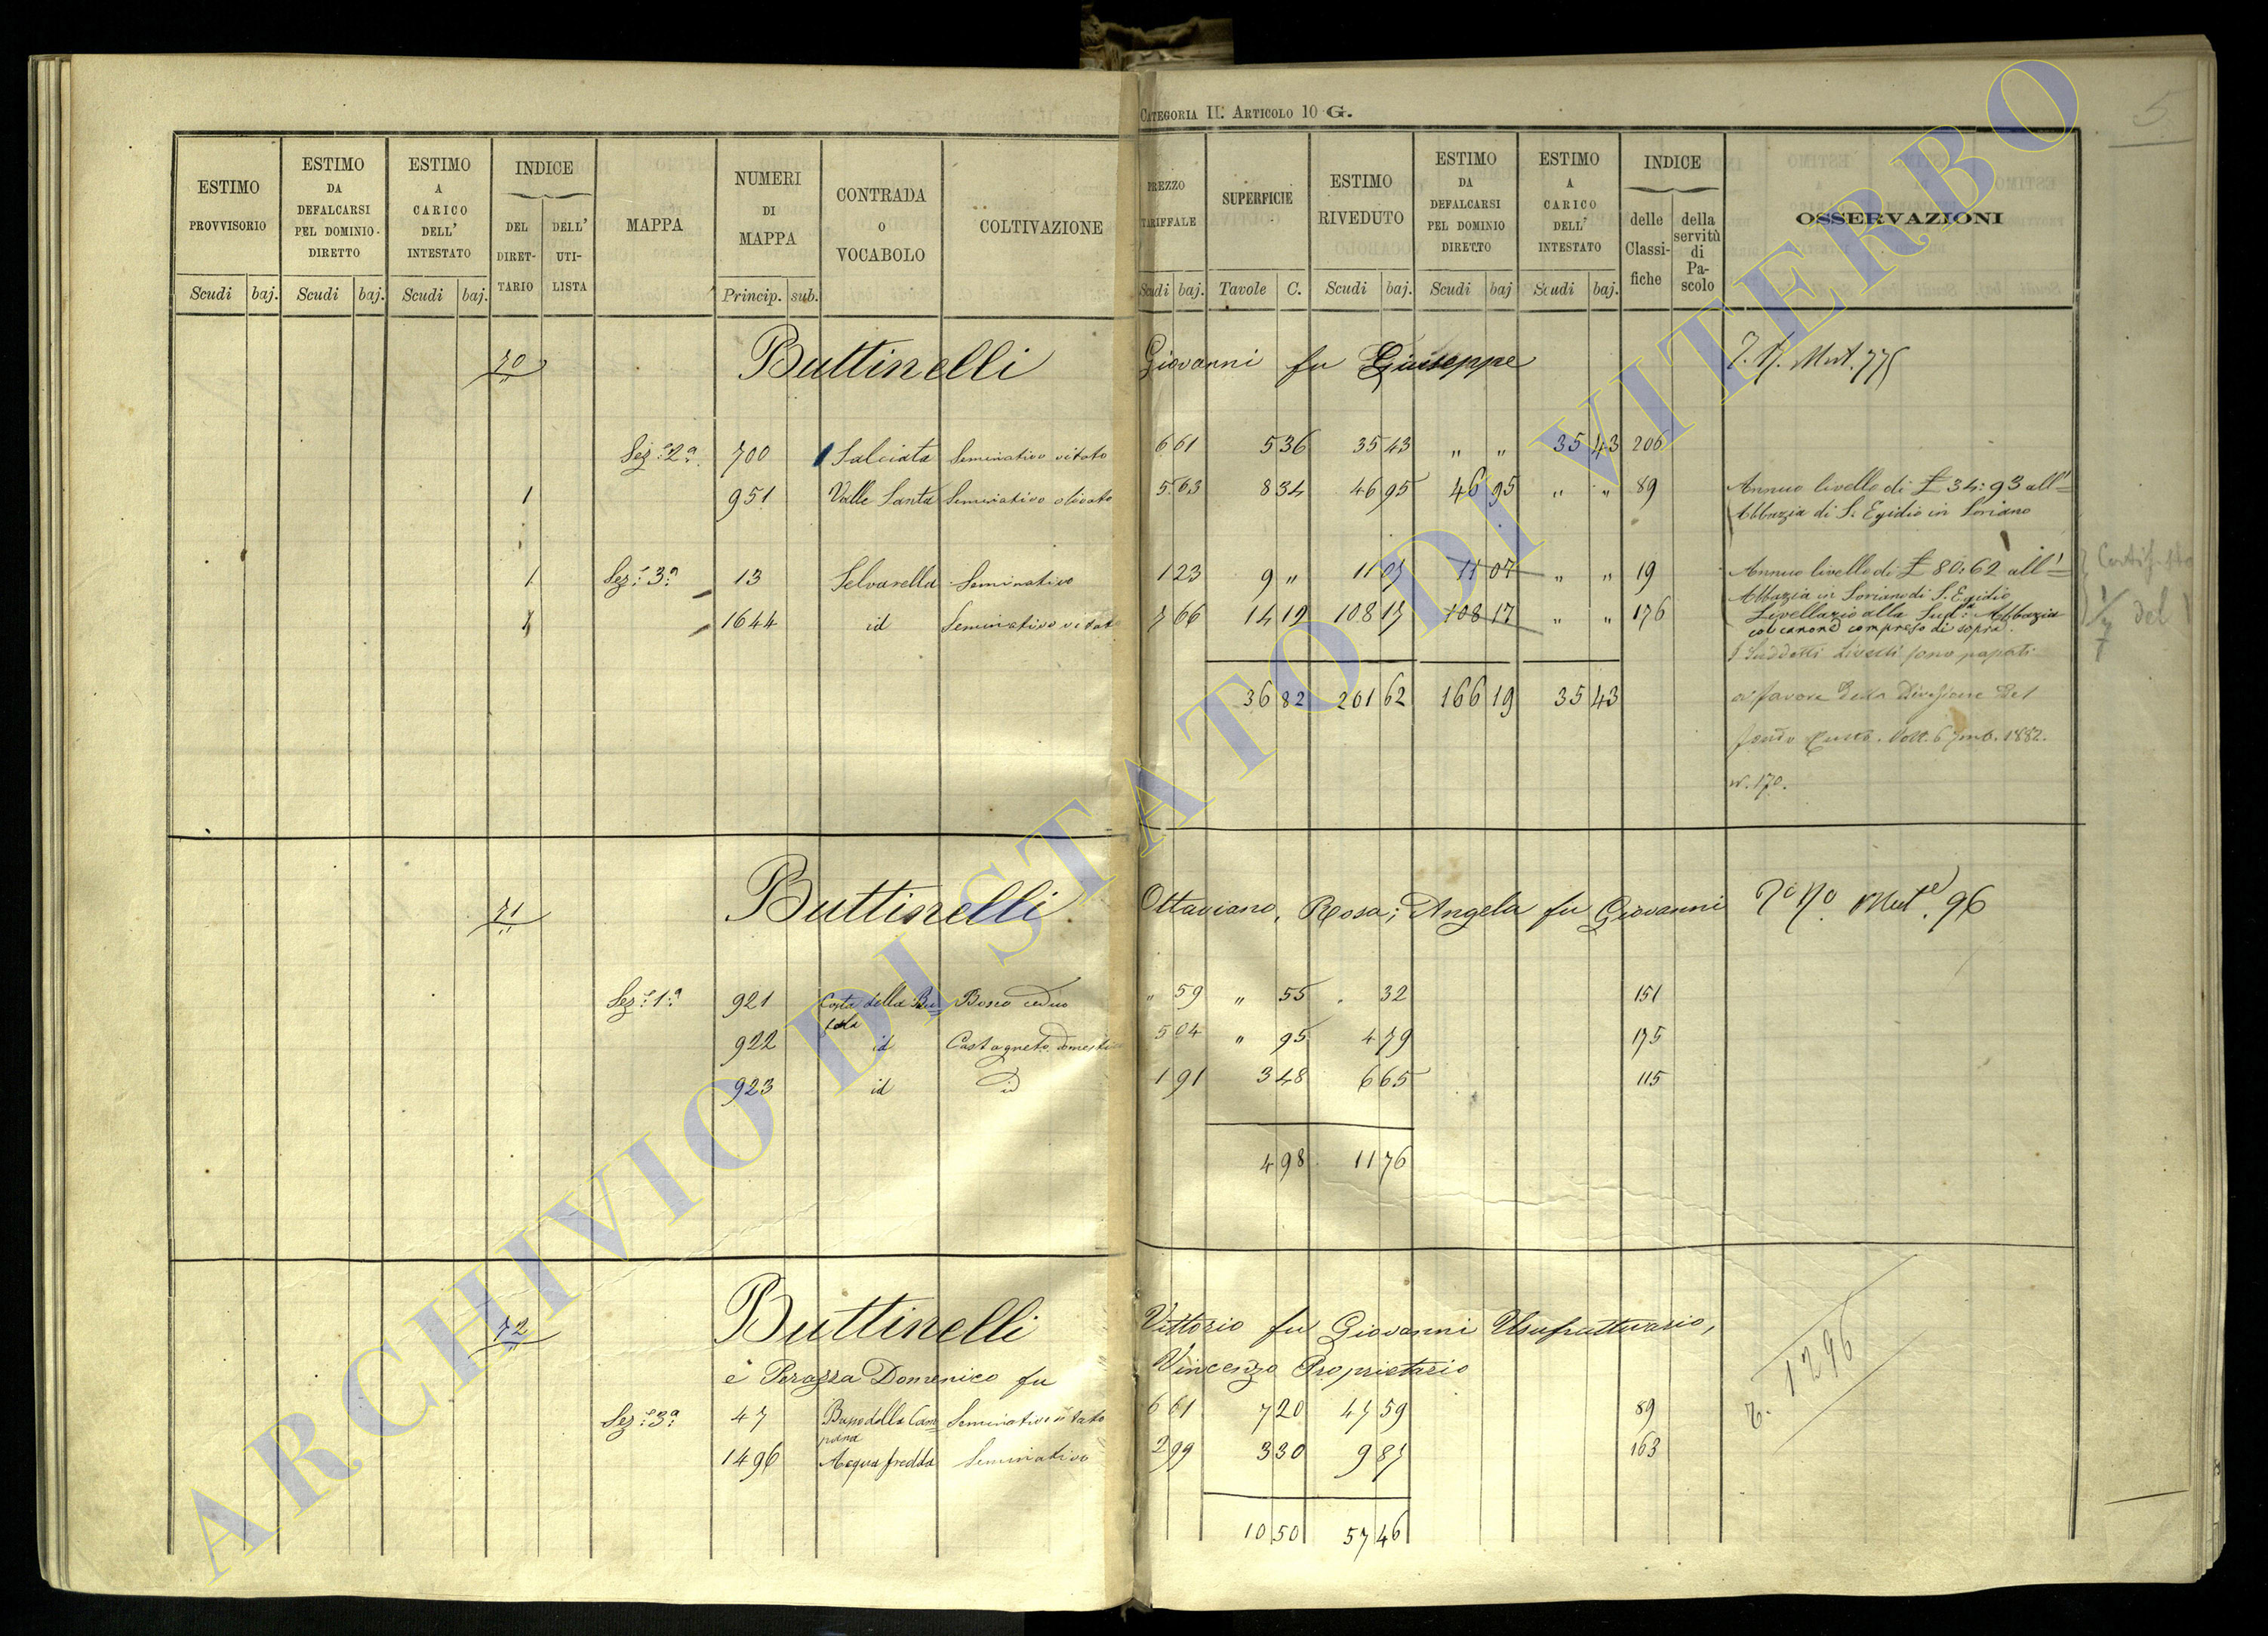 CATEGORIA II. ARTICOLO 10 G.
5
ESTIMO PROVVISORIO Scudi baj.
ESTIMO DA DEFALCARSI PEL DOMINIO DIRETTO Scudi baj.
ESTIMO A CARICO DELL' INTESTATO Scudi baj.
INDICE DEL DIRETTARIO DELL' UTILISTA
MAPPA
NUMERI DI MAPPA Princip. sub.
CONTRADA O VOCABOLO
COLTIVAZIONE
PREZZO TARIFFALE Scudi baj.
SUPERFICIE Tavole C.
ESTIMO RIVEDUTO Scudi baj.
ESTIMO DA DEFALCARSI PEL DOMINIO DIRETTO Scudi baj
ESTIMO A CARICO DELL' INTESTATO Scudi baj.
INDICE delle Classifiche della servitù di Pascolo
OSSERVAZIONI
70 Buttinelli Giovanni fu Giuseppe Mut. 775
Sez.e 2a. 700 Salciata Seminativo vitato 6 61 5 36 35 43 " " 35 43 206
1 951 Valle Santa Seminativo olivato 5 63 8 34 46 95 46 95 " " 89 Annuo livello di £ 34:93 all'
Abbazia di S. Egidio in Soriano
1 Sez.e 3a. 13 Selvarella Seminativo 1 23 9 " 11 07 11 07 " " 19 Annuo livello di £ 80:62 all'
Abbazia in Soriano di S. Egidio
1644 id Seminativo vitato 7 66 14 12 108 17 108 17 " " 176 Livellario alla Sud.a Abbazia
col canone compreso di sopra.
I suddetti Livelli sono passati
36 82 201 62 166 19 35 43 a favore della Divisione del
fondo Culto. Volt. 6 1882.
N. 170.
71 Buttinelli Ottaviano, Rosa; Angela fu Giovanni Mut.e 96
Sez.e 1a. 921 Costa della Bus= Bosco ceduo " 59 " 55 " 32 151
sola
922 id Castagneto domestico 5 04 " 95 4 79 175
923 id id 1 91 3 48 6 65 115
4 98 11 76
72 Buttinelli Vittorio fu Giovanni Usufruttuario,
e Perazza Domenico fu Vincenzo Proprietario
1296
Sez.e 3a. 47 Buso della Cam= Seminativo vitato 6 61 7 20 47 59 89
pana
1496 Acqua fredda Seminativo 2 99 3 30 9 87 163
10 50 57 46
ARCHIVIO DI STATO DI VITERBO